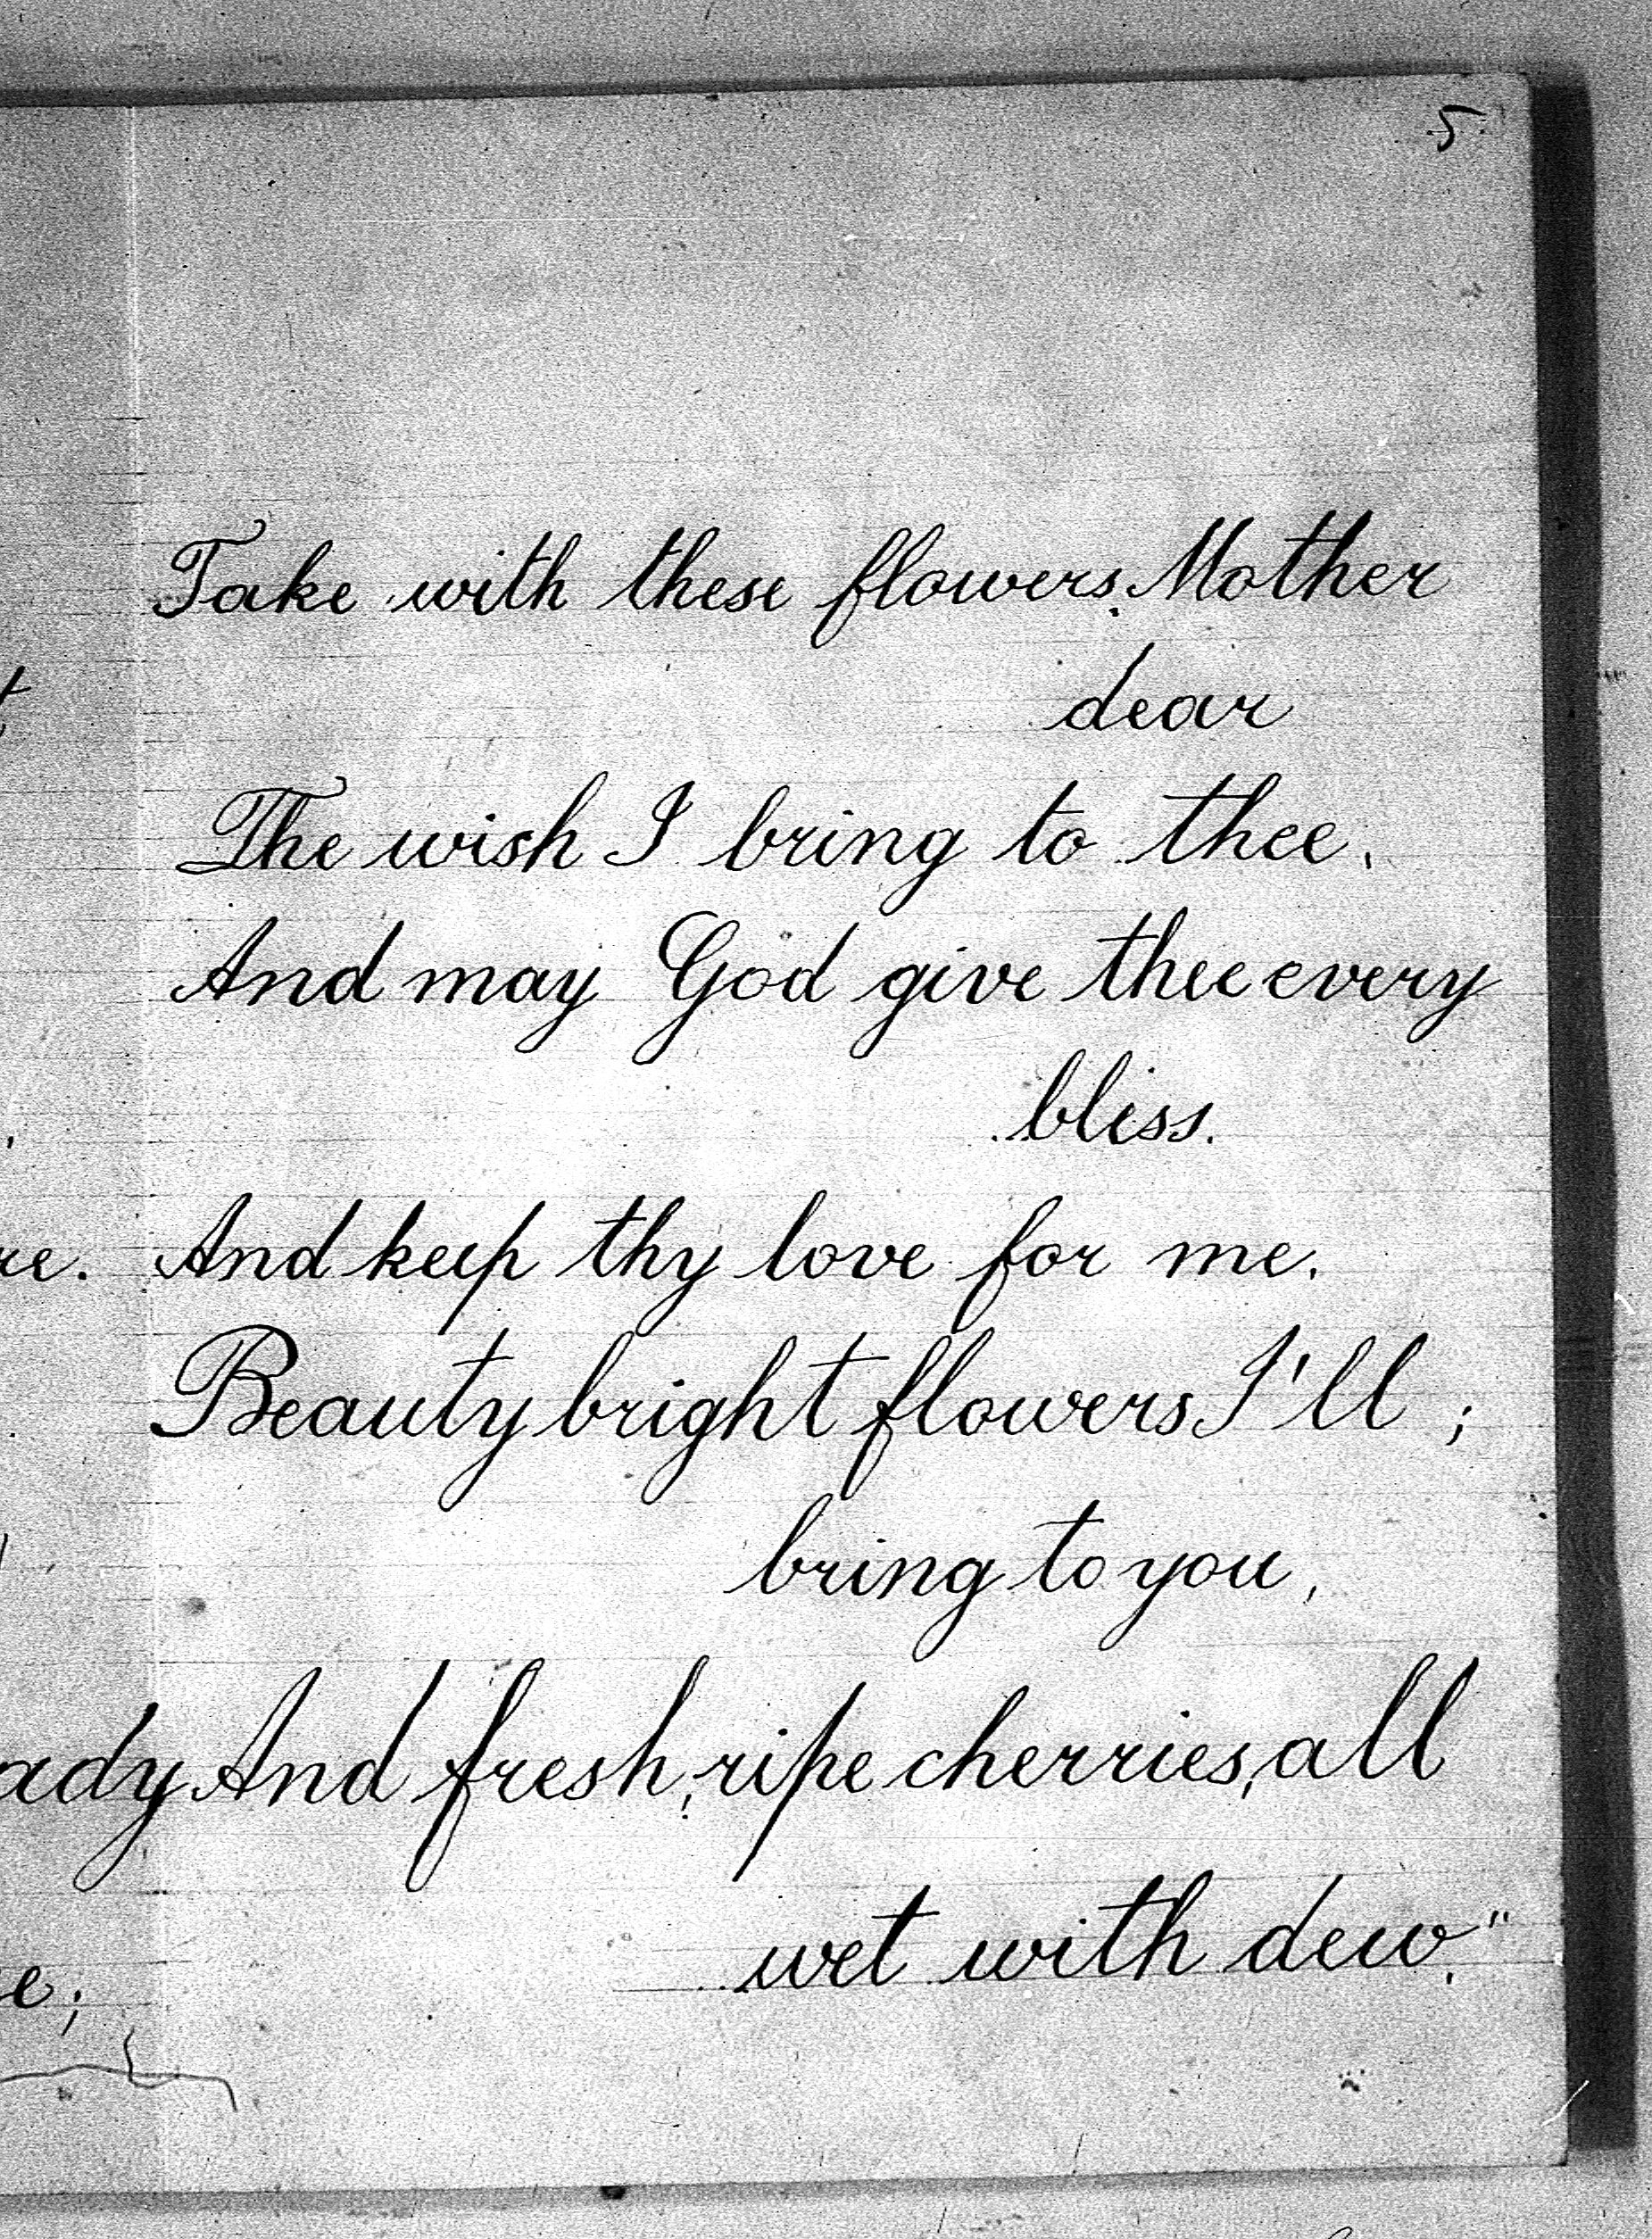 5
Take with these flowers, Mother
dear
The wish I bring to thee,
And may God give thee every
bliss.
And keep thy love for me.
Beauty bright flowers I'll ;
bring to you,
And fresh, ripe cherries, all
wet with dew."